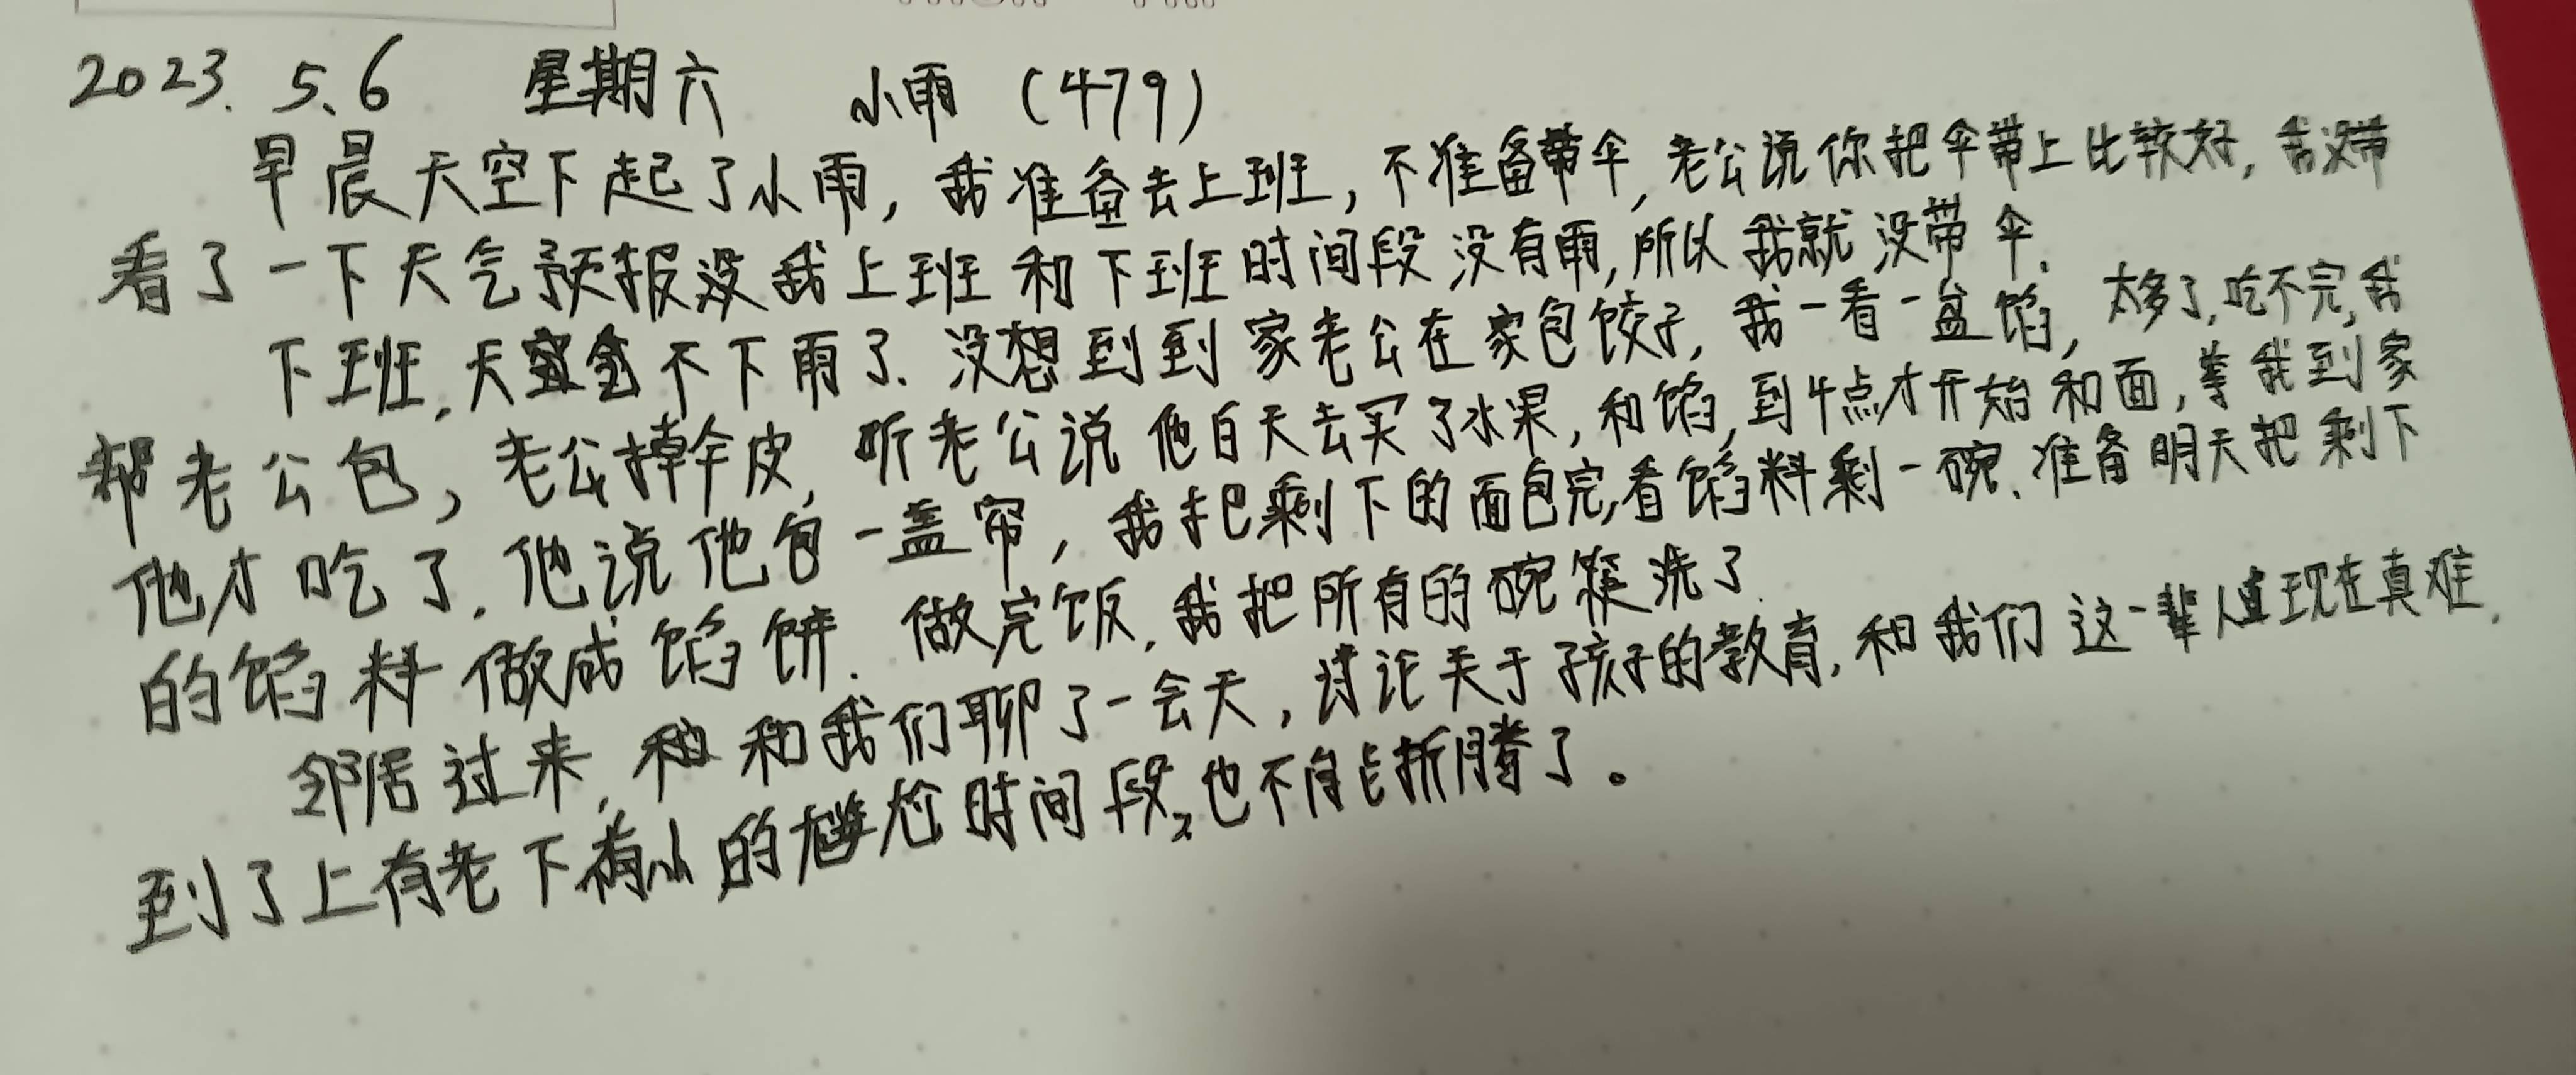 2023.5.6 星期六 小雨 (479)
早晨天空下起了小雨,我准备去上班,不准备带伞,老公说你把伞带上比较好,我没带
看了一下天气预报没我上班和下班时间段没有雨,所以我就没带伞.
下班,天空不下雨了.没想到到家老公在家包饺子,我一看一盆馅,太多了,吃不完,我
帮老公包,老公擀皮,听老公说他白天去买了水果,和馅,到4点才开始和面,等我到家
他才吃了.他说他包一盖帘,我把剩下的面包完,看馅料剩一碗.准备明天把剩下
的馅料做成馅饼.做完饭,我把所有的碗筷洗了.
邻居过来,和我们聊了一会天,讨论关于孩子的教育,和我们这一辈人现在真难.
到了上有老下有小的尴尬时间段,也不能折腾了。